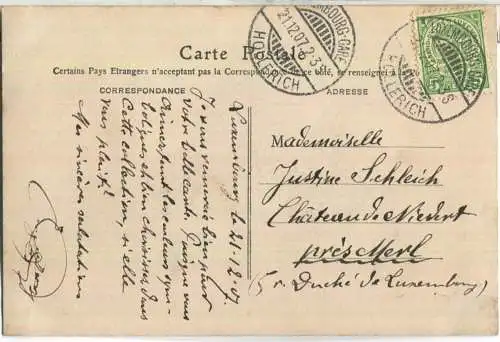 Carte Postale
Certains Pays Etrangers n'acceptant pas la Correspondance de ce côté, se renseigner à la
CORRESPONDANCE
ADRESSE
LUXEMBOURG-GARE
21.12.07. 2-3
HOLLERICH
LUXEMBOURG-GARE
HOLLERICH
Luxembourg le 21-12-07.
Je vous remercie bien pour
votre belle carte. Puisque vous
aimez tant les couleurs
et bien choisies dans
Cette collection, si elle
vous plaît?
Mes sincères salutations
Mademoiselle
Justine Schleich
Château de
près Merl
(Gr. Duché de Luxembourg)